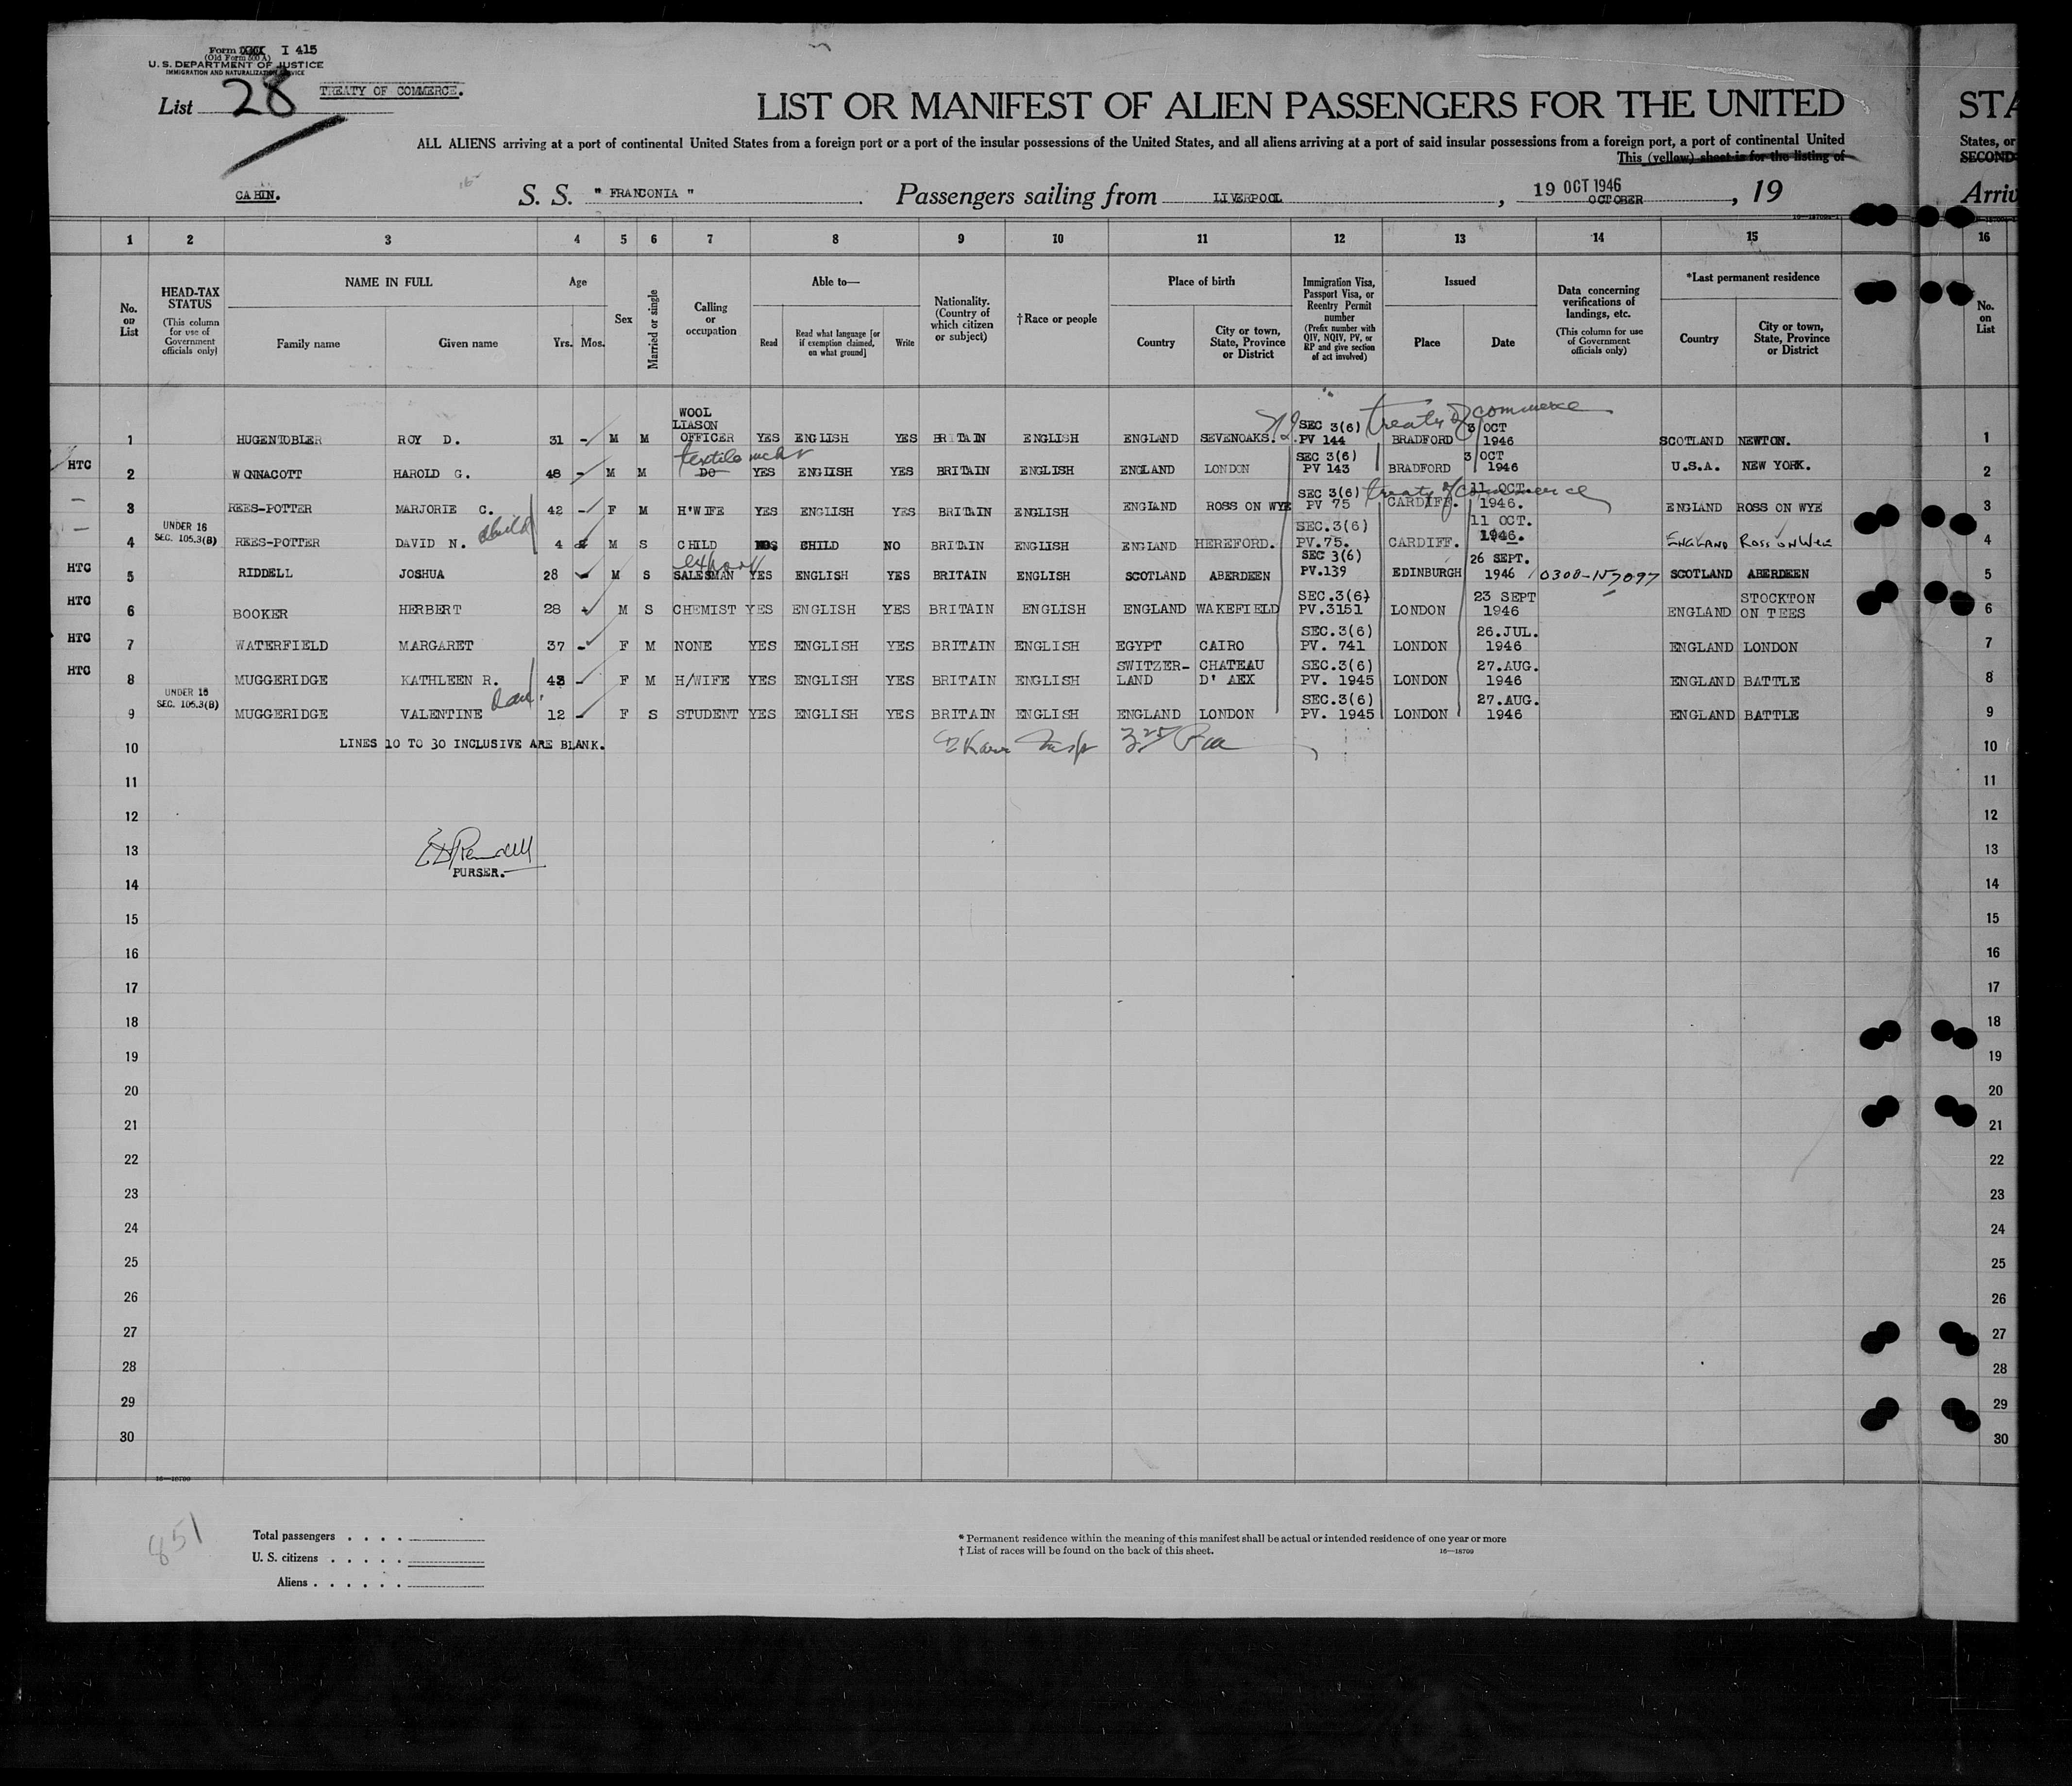 Form I 415
(Old Form 500 A)
U. S. DEPARTMENT OF JUSTICE
IMMIGRATION AND NATURALIZATION SERVICE
List 28
TREATY OF COMMERCE.
LIST OR MANIFEST OF ALIEN PASSENGERS FOR THE UNITED STA
ALL ALIENS arriving at a port of continental United States from a foreign port or a port of the insular possessions of the United States, and all aliens arriving at a port of said insular possessions from a foreign port, a port of continental United States, or
This (yellow) sheet is for the listing of SECOND
CABIN. S. S. " FRANCONIA " Passengers sailing from LIVERPOOL, 19 OCT 1946 OCTOBER, 19 Arriv
1 2 3 4 5 6 7 8 9 10 11 12 13 14 15 16
No. on List
HEAD-TAX STATUS (This column for use of Government officials only)
NAME IN FULL Family name Given name
Age Yrs. Mos.
Sex
Married or single
Calling or occupation
Able to— Read Read what language [or if exemption claimed, on what ground] Write
Nationality. (Country of which citizen or subject)
†Race or people
Place of birth Country City or town, State, Province or District
Immigration Visa, Passport Visa, or Reentry Permit number (Prefix number with QIV, NQIV, PV, or RP and give section of act involved)
Issued Place Date
Data concerning verifications of landings, etc. (This column for use of Government officials only)
*Last permanent residence Country City or town, State, Province or District
No. on List
1 HUGENTOBLER ROY D. 31 M M WOOL LIASON OFFICER YES ENGLISH YES BRITAIN ENGLISH ENGLAND SEVENOAKS. SEC 3(6) PV 144 treaty of commerce BRADFORD 3 OCT 1946 SCOTLAND NEWTON. 1
HTC 2 WONNACOTT HAROLD G. 48 M M textile DO YES ENGLISH YES BRITAIN ENGLISH ENGLAND LONDON SEC 3(6) PV 143 BRADFORD 3 OCT 1946 U.S.A. NEW YORK. 2
3 REES-POTTER MARJORIE C. 42 F M H'WIFE YES ENGLISH YES BRITAIN ENGLISH ENGLAND ROSS ON WYE SEC 3(6) PV 75 treaty of commerce CARDIFF. 11 OCT. 1946. ENGLAND ROSS ON WYE 3
UNDER 16 SEC. 105.3(B) 4 REES-POTTER DAVID N. child 4 M S CHILD CHILD NO BRITAIN ENGLISH ENGLAND HEREFORD. SEC.3(6) PV.75. CARDIFF. 11 OCT. 1946. ENGLAND ROSS ON WYE 4
HTC 5 RIDDELL JOSHUA 28 M S export SALESMAN YES ENGLISH YES BRITAIN ENGLISH SCOTLAND ABERDEEN SEC 3(6) PV.139 EDINBURGH 26 SEPT. 1946 0300-157097 SCOTLAND ABERDEEN 5
HTC 6 BOOKER HERBERT 28 M S CHEMIST YES ENGLISH YES BRITAIN ENGLISH ENGLAND WAKEFIELD SEC.3(6) PV.3151 LONDON 23 SEPT 1946 ENGLAND STOCKTON ON TEES 6
HTC 7 WATERFIELD MARGARET 37 F M NONE YES ENGLISH YES BRITAIN ENGLISH EGYPT CAIRO SEC.3(6) PV. 741 LONDON 26.JUL. 1946 ENGLAND LONDON 7
HTC 8 MUGGERIDGE KATHLEEN R. 43 F M H/WIFE YES ENGLISH YES BRITAIN ENGLISH SWITZER-LAND CHATEAU D' AEX SEC.3(6) PV. 1945 LONDON 27.AUG. 1946 ENGLAND BATTLE 8
UNDER 16 SEC. 105.3(B) 9 MUGGERIDGE VALENTINE dau. 12 F S STUDENT YES ENGLISH YES BRITAIN ENGLISH ENGLAND LONDON SEC.3(6) PV. 1945 LONDON 27.AUG. 1946 ENGLAND BATTLE 9
10 LINES 10 TO 30 INCLUSIVE ARE BLANK. 10
11 11
12 12
13 13
PURSER.
14 14
15 15
16 16
17 17
18 18
19 19
20 20
21 21
22 22
23 23
24 24
25 25
26 26
27 27
28 28
29 29
30 30
16—18700
851
Total passengers
U. S. citizens
Aliens
* Permanent residence within the meaning of this manifest shall be actual or intended residence of one year or more
† List of races will be found on the back of this sheet. 16—18700